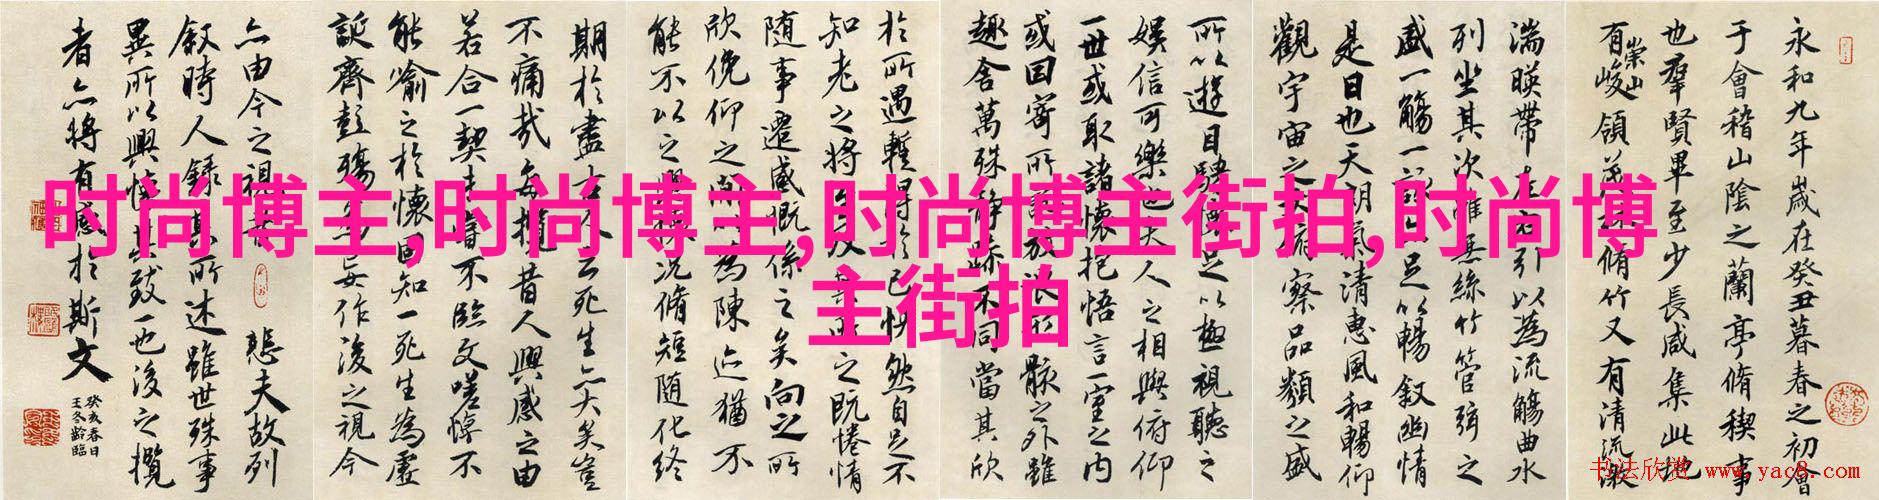 时尚博主,时尚博主,时尚博主街拍,时尚博
主街拍
永和九年歲在癸丑暮春之初會
于會稽山陰之蘭亭脩稧事
也羣賢畢至少長咸集此地
有崇山峻領茂林脩竹又有清流激
湍暎帶左右引以為流觴曲水
列坐其次雖無絲竹管弦之
盛一觴一詠亦足以暢敘幽情
是日也天朗氣清惠風和暢仰
觀宇宙之大俯察品類之盛
所以遊目騁懷足以極視聽之
娛信可樂也夫人之相與俯仰
一世或取諸懷抱悟言一室之內
或因寄所託放浪形骸之外雖
趣舍萬殊靜躁不同當其欣
於所遇暫得於己快然自足不
知老之將至及其所之既惓情
随事遷感慨係之矣向之所
欣俛仰之間以為陳迹猶不
能不以之興懷況脩短随化終
期於盡古人云死生亦大矣豈
不痛哉每攬昔人興感之由
若合一契未嘗不臨文嗟悼不
能喻之於懷固知一死生為虛
誕齊彭殤為妄作後之視今
亦由今之視昔悲夫故列
敘時人錄其所述雖世殊事
異所以興懷其致一也後之攬
者亦將有感於斯文
癸亥春日
王冬齡臨
书法欣赏 www.yac8.com